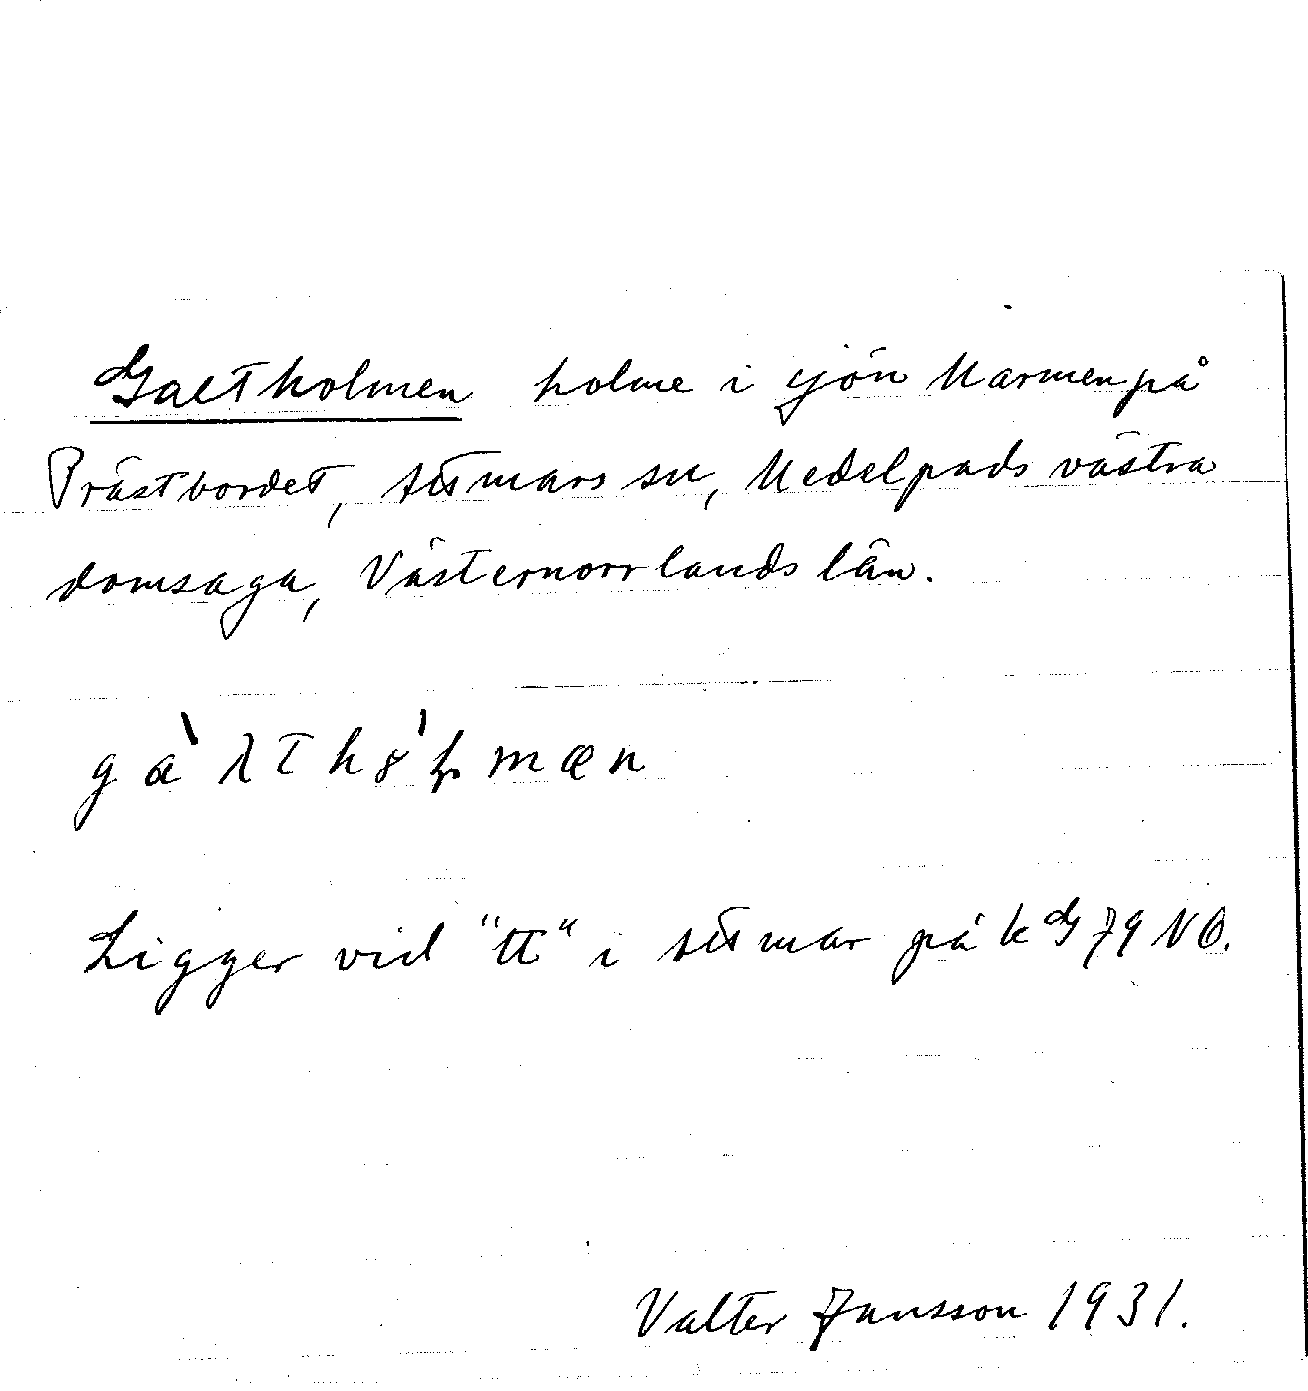 Galtholmen holme i sjön Marmen på
Prästbordet, Attmars sn, Medelpads västra
domsaga, Västernorrlands län.
Ligger vid "tt" i Attmar på k G 79 NO.
Valter Jansson 1931.